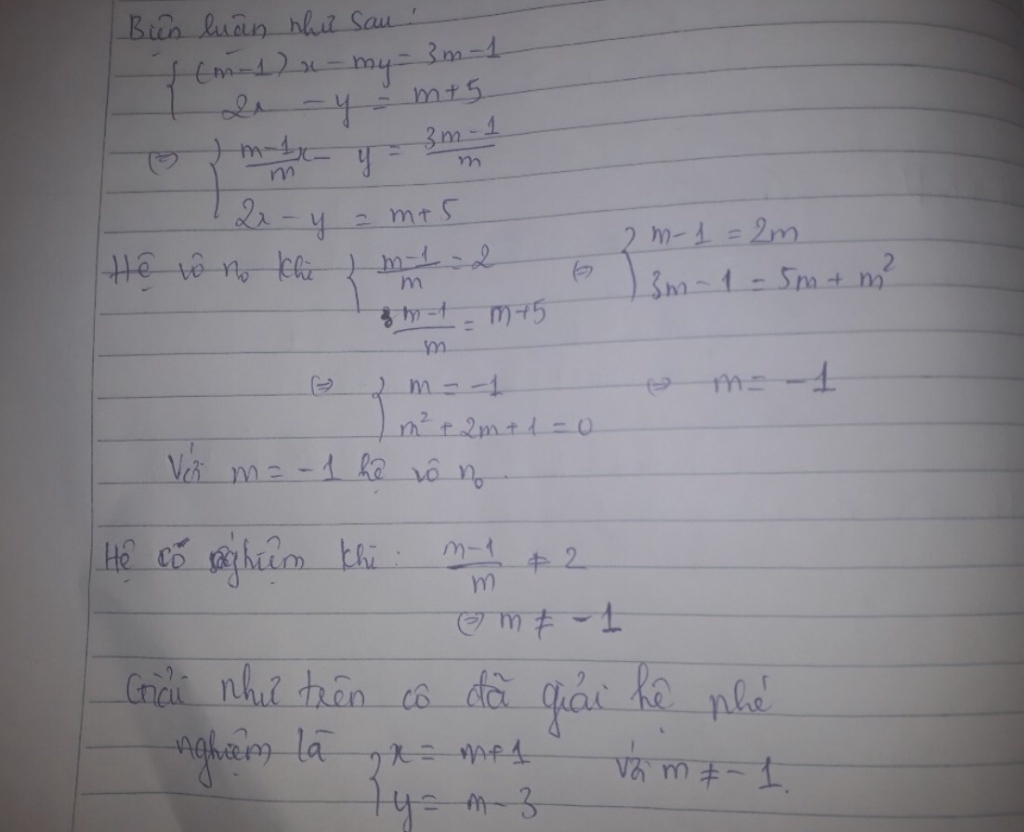 Biện luận như sau:
{ (m-1)x - my = 3m-1
2x - y = m+5
⇔ { m-1/m x - y = 3m-1/m
2x - y = m+5
Hệ vô n₀ khi { m-1/m = 2 ⇔ { m-1 = 2m
3m-1/m = m+5 3m-1 = 5m + m²
⇔ { m = -1 ⇔ m = -1
m² + 2m + 1 = 0
Với m = -1 hệ vô n₀.
Hệ có nghiệm khi: m-1/m ≠ 2
⇔ m ≠ -1
Giải như trên cô đã giải hệ nhé
nghiệm là { x = m+1 với m ≠ -1.
y = m-3